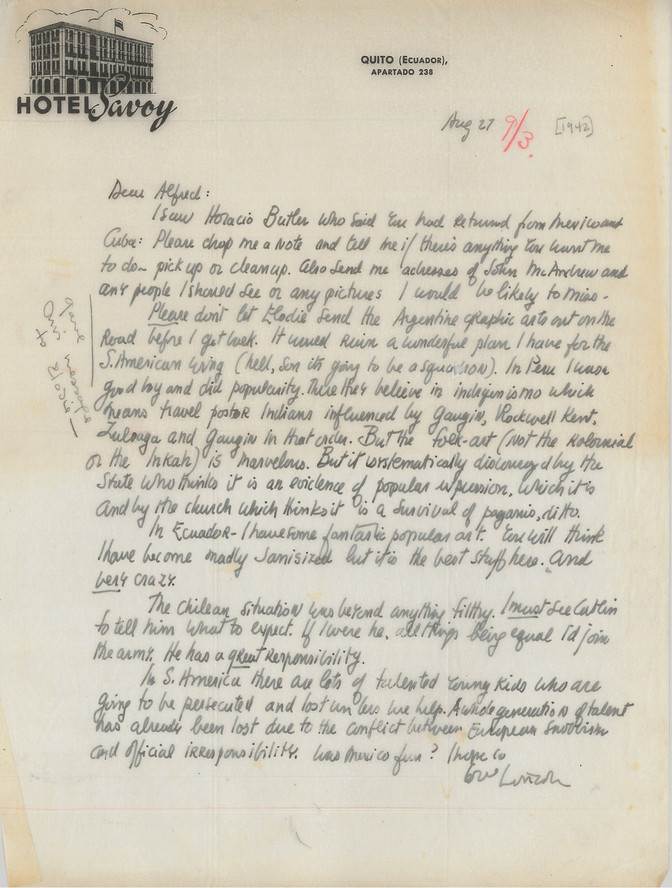 HOTEL Savoy
QUITO (ECUADOR),
APARTADO 238
Aug 27 9/3. [1942]
Dear Alfred:
I saw Horacio Butler who said you had returned from Mexico and
Cuba: Please drop me a note and tell me if there's anything you want me
to do - pick up or clean up. Also send me adresses of John McAndrew and
any people I should see or any pictures I would be likely to miss -
Please don't let Elodie send the Argentine graphic arts out on the
Road before I get back. It would ruin a wonderful plan I have for the
S. American wing (hell, son its going to be a squadron). In Peru I was a
good boy and did popularity. There they believe in indigenismo which
means travel poster Indians influenced by Gaugin, Rockwell Kent,
Zuloaga and Gaugin in that order. But the folk-art (not the Kolonnial
or the Inkah) is marvelous. But it is systematically discouraged by the
State who thinks it is an evidence of popular expression, which it is
and by the church which thinks it is a survival of paganis, ditto.
In Ecuador - I have some fantastic popular art. You will think
I have become madly Janisized but it is the best stuff here. And
very crazy.
The Chilean situation was beyond anything filthy. I must see Catlin
to tell him what to expect. If I were he, all things being equal I'd join
the army. He has a great responsibility.
In S. America there are lots of talented young kids who are
going to be persecuted and lost unless we help. A whole generation of talent
has already been lost due to the conflict between European snobbism
and official irresponsibility. Was Mexico fun? I hope so
Lincoln
gave
this message
to
Elodie